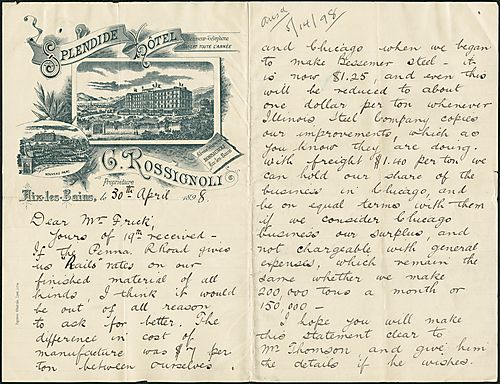 SPLENDIDE HÔTEL
OUVERT TOUTE L'ANNÉE
G. ROSSIGNOLI
Propriétaire
Aix-les-Bains, le 30th April 1898.
Dear Mr Frick:
Yours of 19th received –
If the Penna. R Road gives
us "Rails" rates on our
finished material of all
kinds, I think it would
be out of all reason
to ask for better. The
difference in cost of
manufacture was $7 per
ton between ourselves
ansd
5/14/98
and Chicago when we began
to make Bessemer steel – it
is now $1.25, and even this
will be reduced to about
one dollar per ton whenever
Illinois Steel Company copies
our improvements, which as
you know they are doing.
With freight $1.40 per ton we
can hold our share of the
business in Chicago, and
be on equal terms with them
if we consider Chicago
business our surplus, and
not chargeable with general
expenses, which remain the
same whether we make
200,000 tons a month or
150,000 –
I hope you will make
this statement clear to
Mr Thomson, and give him
the details if he wishes.